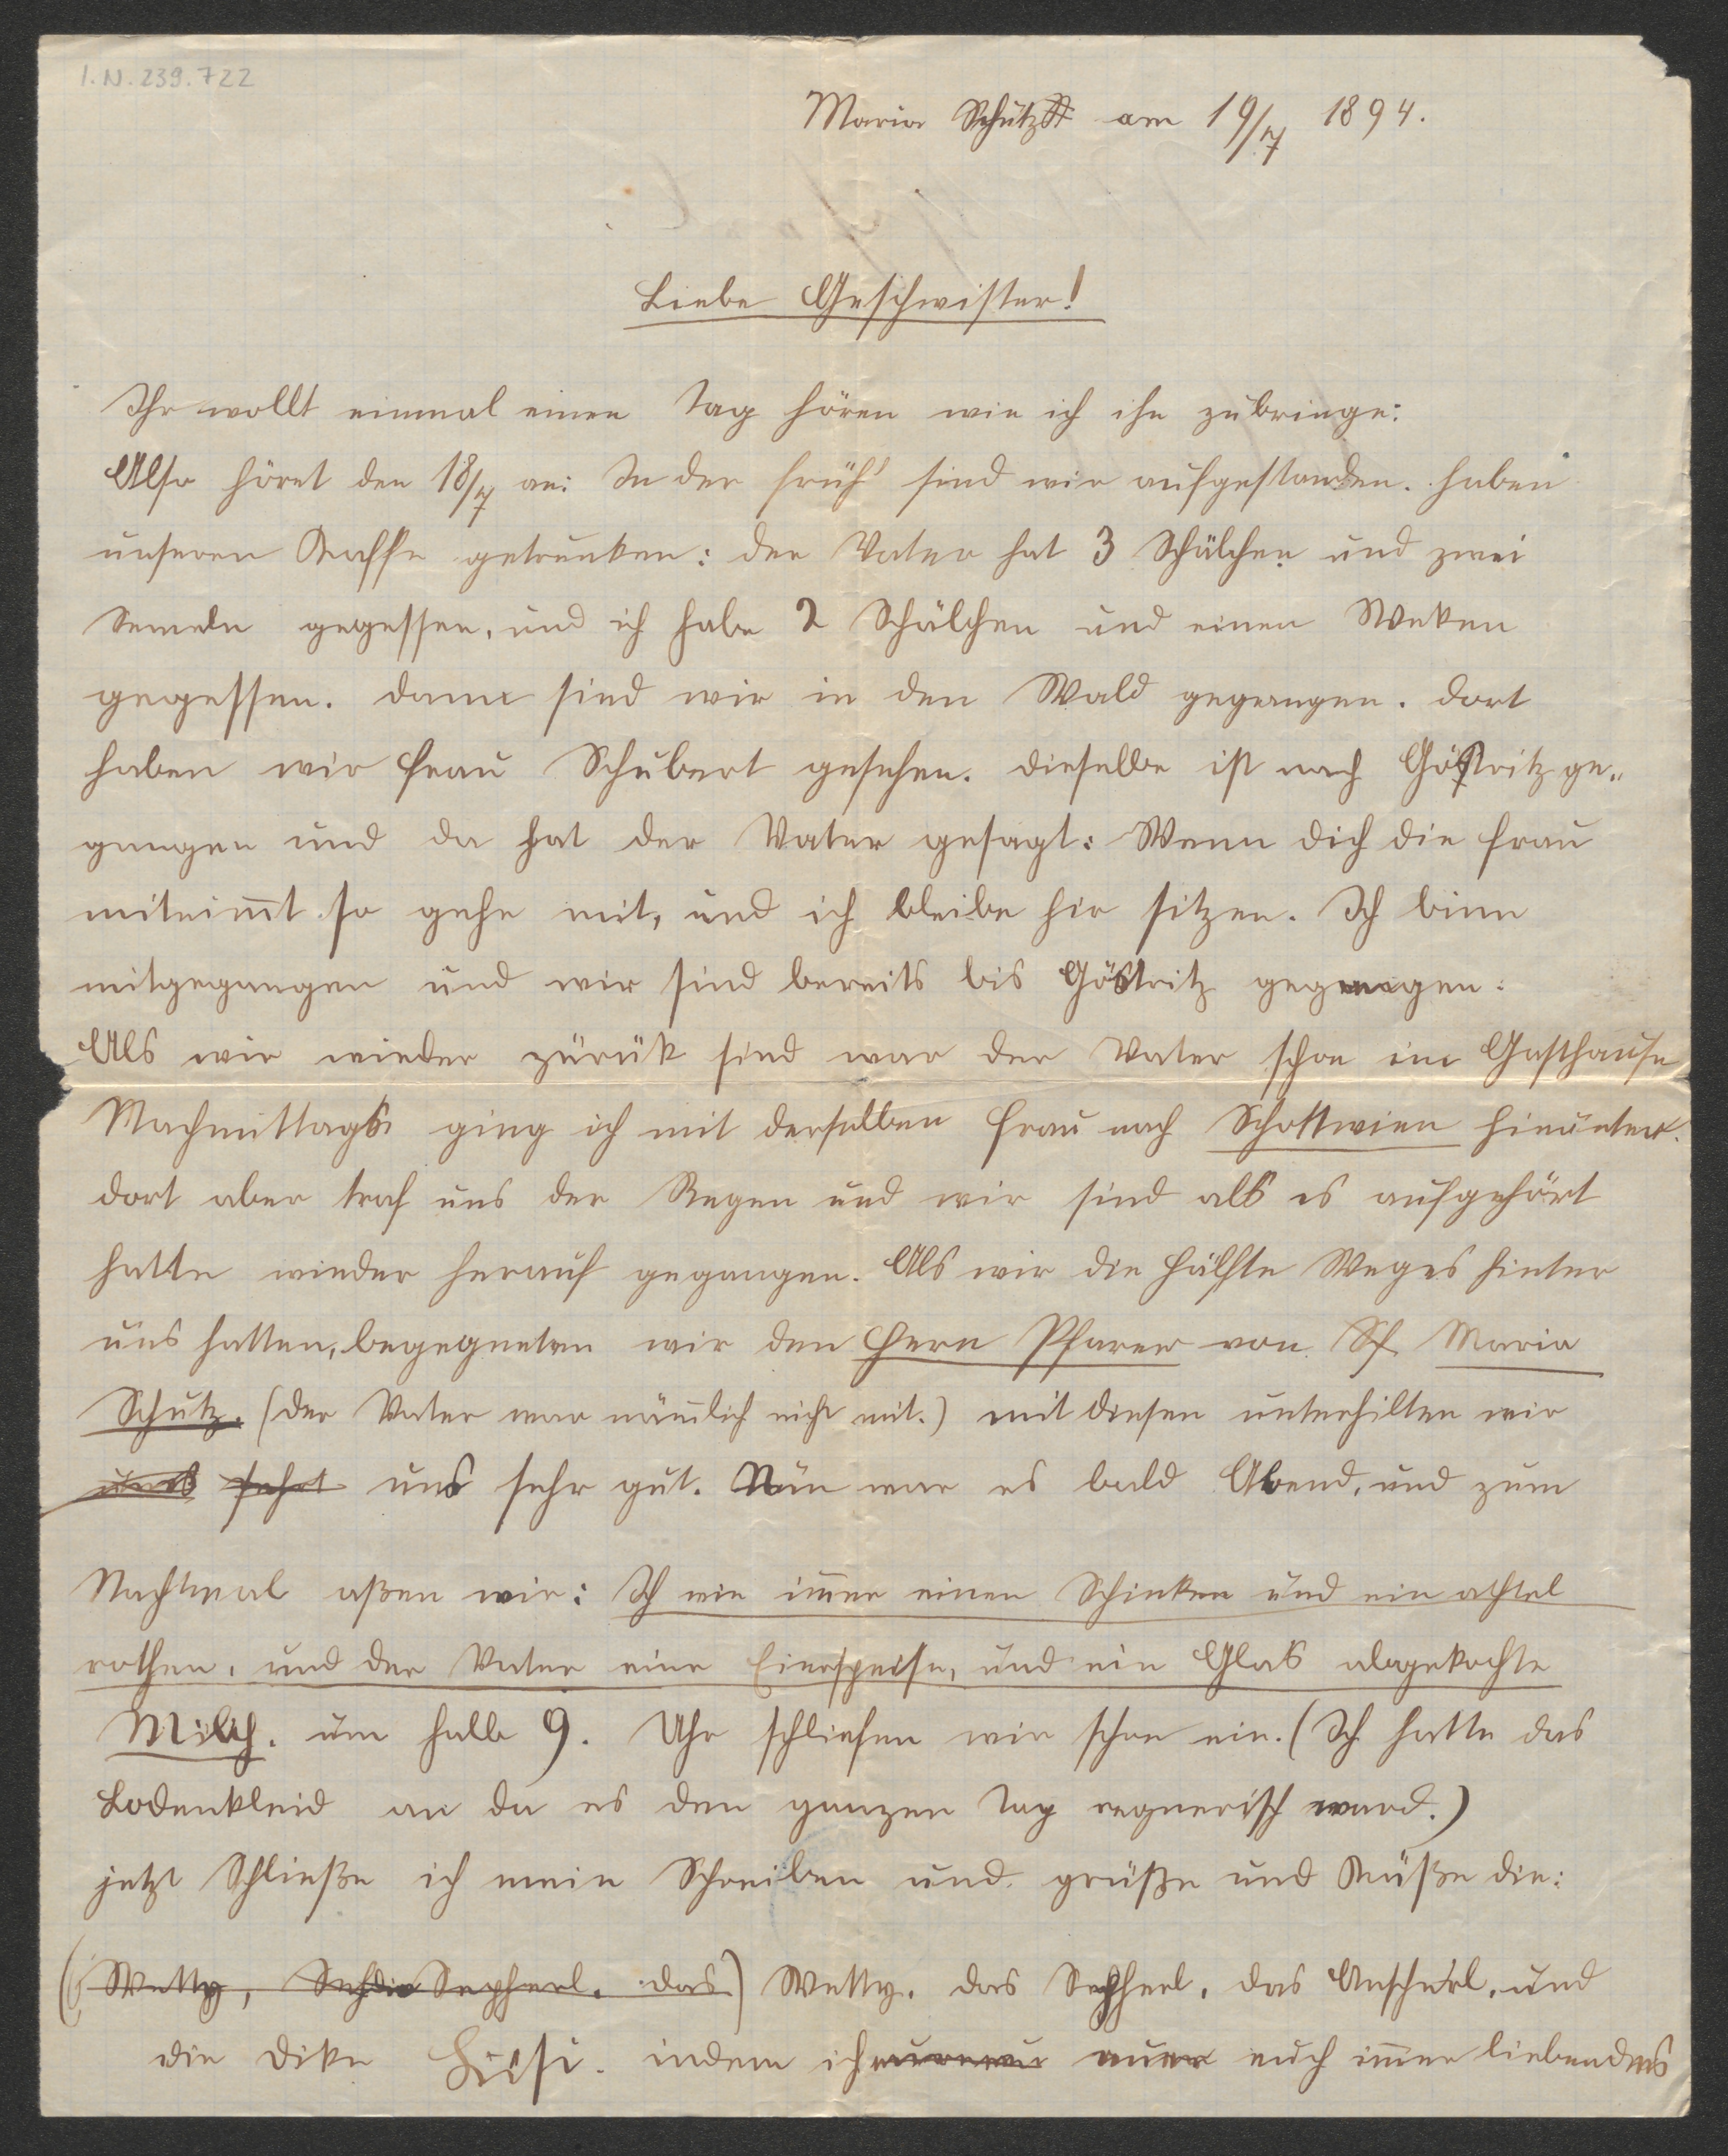 I.N. 239.722
Maria Schutz am 19/7 1894.
Liebe Geschwister!
Ihr wollt einmal einen Tag hören wie ich ihn zubringe:
Also höret den 18/7 an: In der früh' sind wir aufgestanden. haben
unseren Kaffe getrunken: der Vater hat 3 Schälchen und zwei
Semeln gegessen, und ich habe 2 Schälchen und einen Weken
gegessen. dann sind wir in den Wald gegangen. dort
haben wir frau Schubert gesehen. dieselbe ist nach Göstritz ge„
gangen und da hat der Vater gesagt: Wenn dich die frau
mitnim̄t so gehe mit, und ich bleibe hir sitzen. Ich binn
mitgegangen und wir sind bereits bis Göstritz gegangen:
Als wir wieder zürük sind war der Vater schon im Gasthause
Nachmittags ging ich mit derselben frau nach Schottwien hinunter.
dort aber traf uns der Regen und wir sind als es aufgehört
hatte wieder herauf gegangen. Als wir die hälfte Weges hinter
uns hatten, begegneten wir den Hern Pfarer von Maria
Schutz. (der Vater war näm̄lich nicht mit.) mit diesen unterhilten wir
uns sehr uns sehr gut. Nun war es bald Abend, und zum
Nachtmal aßen wir: Ich wie im̄er einen Schinken und ein achtel
rothen, und der Vater eine Eierspeise, und ein Glas abgekochte
Milch. um halb 9. Uhr schliefen wir schon ein. (Ich hatte das
Lodenkleid an da es den ganzen Tag regnerisch ward.)
jetzt Schließe ich mein Schreiben und grüße und Küße die:
(Wetty, Sepherl. das) Wetty. das Sepherl. das Anscherl. und
die dike Hiesi. indem ich euch im̄er liebendes